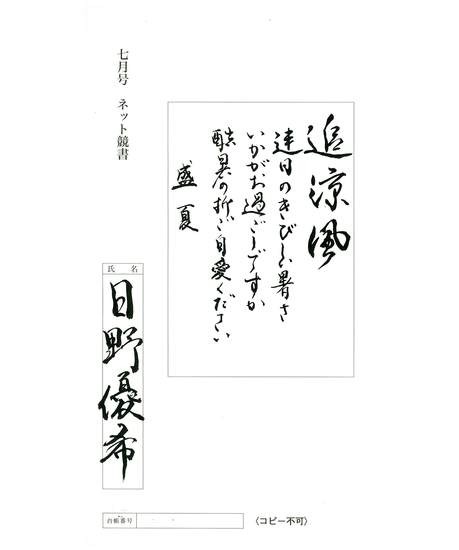 追涼風
連日のきびしい暑さ
いかがお過ごしですか
酷暑の折ご自愛ください
盛夏
七月号 ネット競書
氏名
日野優希
台帳番号
(コピー不可)